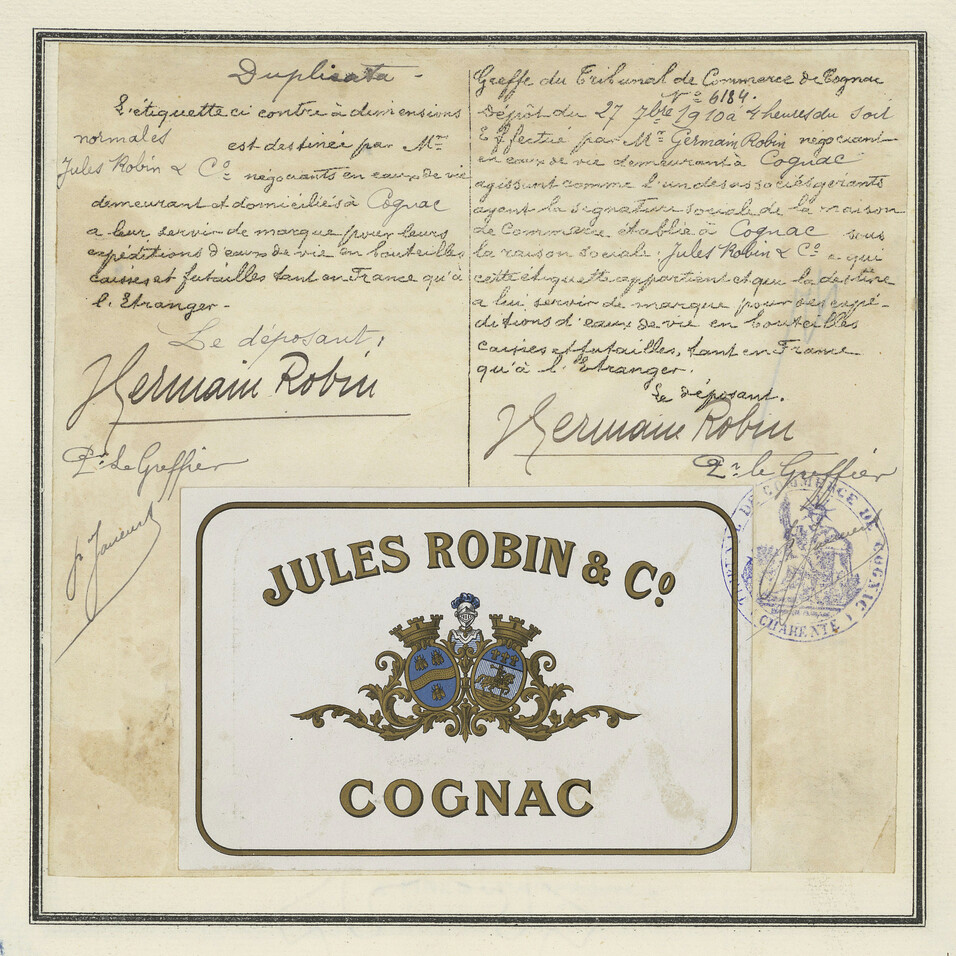 Duplicata -
L'étiquette ci contre à dimensions
normales est destinée par Mrs
Jules Robin & Co négociants en eaux de vie
demeurant et domiciliés à Cognac
a leur servir de marque pour leurs
expéditions d'eaux de vie en bouteilles
caisses et futailles tant en France qu'à
l'Etranger -
Le déposant,
Germain Robin
Pr. le Greffier
Greffe du Tribunal de Commerce de Cognac
No 6184.
Dépôt du 27 7bre 1910 à 4 heures du soir
Effectué par Mr Germain Robin négociant
en eaux de vie demeurant à Cognac
agissant comme l'un des associés gérants
ayant la signature sociale de la maison
de Commerce établie à Cognac sous
la raison sociale: Jules Robin & Co a qui
cette étiquette appartient et qui la destine
a lui servir de marque pour ses expé-
ditions d'eaux de vie en bouteilles
caisses et futailles, tant en France
qu'à l'Etranger.
Le déposant.
Germain Robin
Pr. le Greffier
TRIBUNAL DE COMMERCE DE COGNAC
CHARENTE
JULES ROBIN & Co.
COGNAC